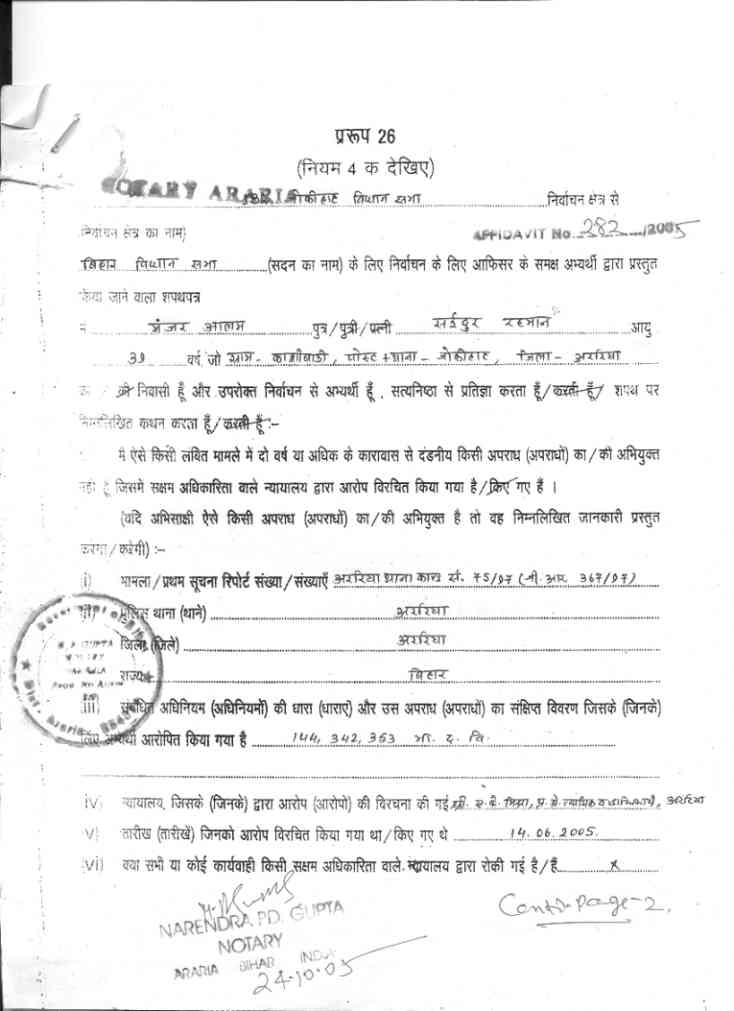 प्ररूप 26
(नियम 4 क देखिए)
NOTARY ARARIA जोकीहाट विधान सभा निर्वाचन क्षेत्र से
निर्वाचन क्षेत्र का नाम) AFFIDAVIT No. 282 /2005
बिहार विधान सभा (सदन का नाम) के लिए निर्वाचन के लिए आफिसर के समक्ष अभ्यर्थी द्वारा प्रस्तुत
किया जाने वाला शपथपत्र
मैं मंजर आलम पुत्र/पुत्री/पत्नी सईदुर रहमान आयु
39 वर्ष जो ग्राम- काशीबाड़ी, पोस्ट + थाना - जोकीहाट, जिला- अररिया
का / की निवासी हूँ और उपरोक्त निर्वाचन से अभ्यर्थी हूँ, सत्यनिष्ठा से प्रतिज्ञा करता हूँ/करती हूँ/ शपथ पर
निम्नलिखित कथन करता हूँ/करती हूँ :–
मै ऐसे किसी लंबित मामले में दो वर्ष या अधिक के कारावास से दंडनीय किसी अपराध (अपराधों) का/की अभियुक्त
नहीं हूँ जिसमे सक्षम अधिकारिता वाले न्यायालय द्वारा आरोप विरचित किया गया है/किए गए हैं ।
(यदि अभिसाक्षी ऐसे किसी अपराध (अपराधों) का/की अभियुक्त है तो वह निम्नलिखित जानकारी प्रस्तुत
करेगा/करेगी) :–
i) मामला/प्रथम सूचना रिपोर्ट संख्या/संख्याएँ अररिया थाना काण्ड सं. 75/97 (जी. आर. 367/97)
पुलिस थाना (थाने) अररिया
जिला (जिले) अररिया
राज्य बिहार
iii) संबंधित अधिनियम (अधिनियमों) की धारा (धाराएं) और उस अपराध (अपराधों) का संक्षिप्त विवरण जिसके (जिनके)
लिए अभ्यर्थी आरोपित किया गया है 144, 342, 353 भा. द. वि.
iv) न्यायालय, जिसके (जिनके) द्वारा आरोप (आरोपो) की विरचना की गई श्री. मिश्रा, अररिया
v) तारीख (तारीखें) जिनको आरोप विरचित किया गया था/किए गए थे 14.06.2005.
vi) क्या सभी या कोई कार्यवाही किसी सक्षम अधिकारिता वाले न्यायालय द्वारा रोकी गई है/हैं x
NARENDRA PD. GUPTA
NOTARY
ARARIA BIHAR INDIA
24-10-05
Contd-Page-2.